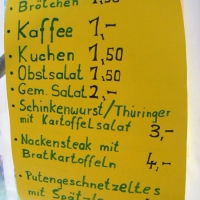 • Brötchen 1,50
• Kaffee 1,-
• Kuchen 1,50
• Obstsalat 1,50
• Gem. Salat 2,-
• Schinkenwurst/Thüringer
mit Kartoffelsalat 3,-
• Nackensteak mit
Bratkartoffeln 4,-
• Putengeschnetzeltes
mit Spätzle